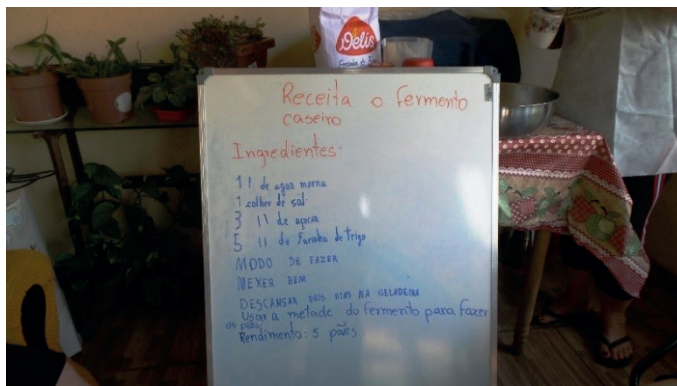 Delis
Farinha de
Receita o fermento
caseiro
Ingredientes:
1 l de agua morna
1 colher de sal.
3 11 de açucar
5 11 de Farinha de Trigo
MODO DE FAZER
MEXER BEM
DESCANSAR DOIS DIAS NA GELADEIRA
Usar a metade do fermento para fazer
os pães.
Rendimento: 5 pães